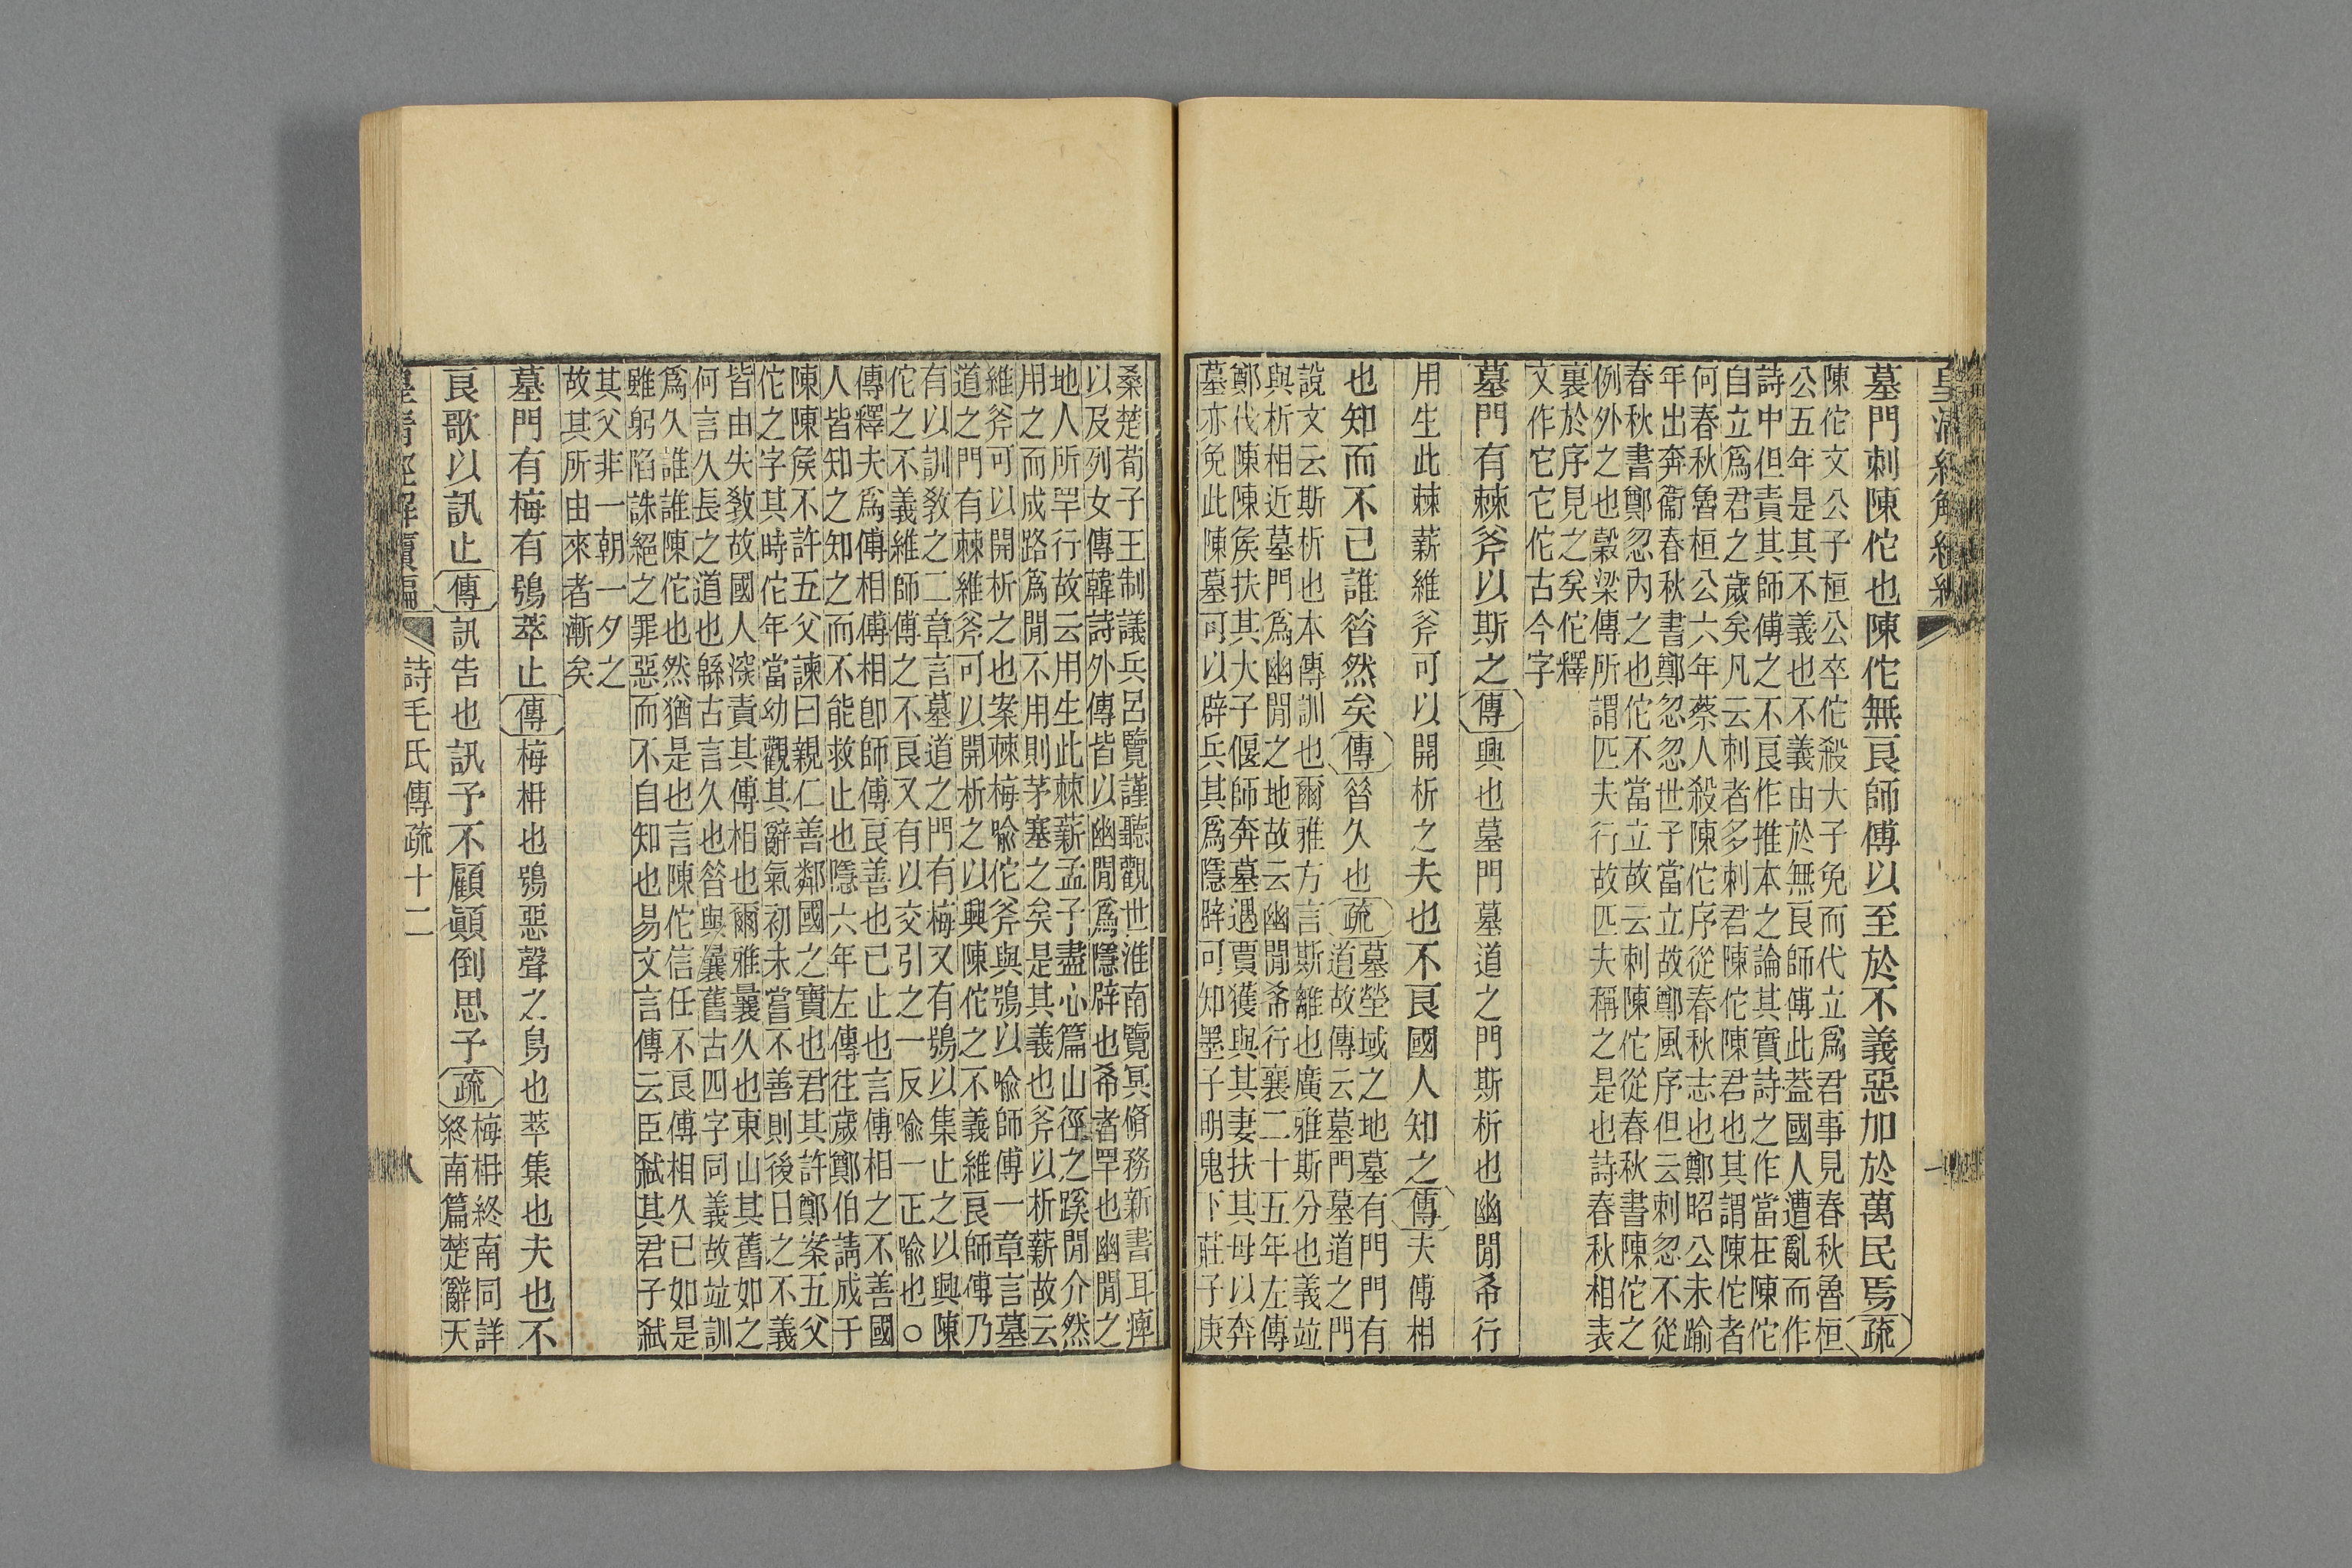 墓門刺陳佗也陳佗無良師傅以至於不義惡加於萬民焉疏
陳佗文公子桓公卒佗殺大子免而代立爲君事見春秋魯桓
公五年是其不義也不義由於無良師傅此葢國人遭亂而作
詩中但責其師傅之不良作推本之論其實詩之作當在陳佗
自立爲君之歲矣凡云刺者多刺君陳佗陳君也其謂陳佗者
何春秋魯桓公六年蔡人殺陳佗序從春秋志也鄭昭公未踰
年出奔衞春秋書鄭忽忽世子當立故鄭風序但云刺忽不從
春秋書鄭忽內之也佗不當立故云刺陳佗從春秋書陳佗之
例外之也穀梁傳所謂匹夫行故匹夫稱之是也詩春秋相表
裏於序見之矣佗釋
文作它它佗古今字
墓門有棘斧以斯之傳興也墓門墓道之門斯析也幽閒希行
用生此棘薪維斧可以開析之夫也不良國人知之傳夫傅相
也知而不已誰昝然矣傳昝久也疏墓塋域之地墓有門門有
道故傳云墓門墓道之門
說文云斯析也本傳訓也爾雅方言斯離也廣雅斯分也義竝
與析相近墓門爲幽閒之地故云幽閒希行襄二十五年左傳
鄭伐陳陳矦扶其大子偃師奔墓遇賈獲與其妻扶其母以奔
墓亦免此陳墓可以辟兵其爲隱辟可知墨子明鬼下莊子庚
桑楚荀子王制議兵呂覽謹聽觀世淮南覽冥脩務新書耳痺
以及列女傳韓詩外傳皆以幽閒爲隱辟也希者罕也幽閒之
地人所罕行故云用生此棘薪孟子盡心篇山徑之蹊閒介然
用之而成路爲閒不用則茅塞之矣是其義也斧以析薪故云
維斧可以開析之也案棘梅喩佗斧與鴞以喩師傅一章言墓
道之門有棘維斧可以開析之以興陳佗之不義維良師傅乃
有以訓敎之二章言墓道之門有梅又有鴞以集止之以興陳
佗之不義維師傅之不良又有以交引之一反喩一正喩也○
傳釋夫爲傅相傅相卽師傅良善也已止也言傅相之不善國
人皆知之知之而不能救止也隱六年左傳往歲鄭伯請成于
陳陳矦不許五父諫曰親仁善鄰國之寶也君其許鄭案五父
佗之字其時佗年當幼觀其辭氣初未嘗不善則後日之不義
皆由失敎故國人深責其傅相也爾雅曩久也東山其舊如之
何言久長之道也緜古言久也昝與曩舊古四字同義故竝訓
爲久誰誰陳佗也然猶是也言陳佗信任不良傅相久已如是
雖躬陷誅絕之罪惡而不自知也易文言傳云臣弑其君子弑
其父非一朝一夕之
故其所由來者漸矣
墓門有梅有鴞萃止傳梅枏也鴞惡聲之鳥也萃集也夫也不
良歌以訊止傳訊告也訊予不顧顚倒思予疏梅枏終南同詳
終南篇楚辭天
詩毛氏傳疏十二